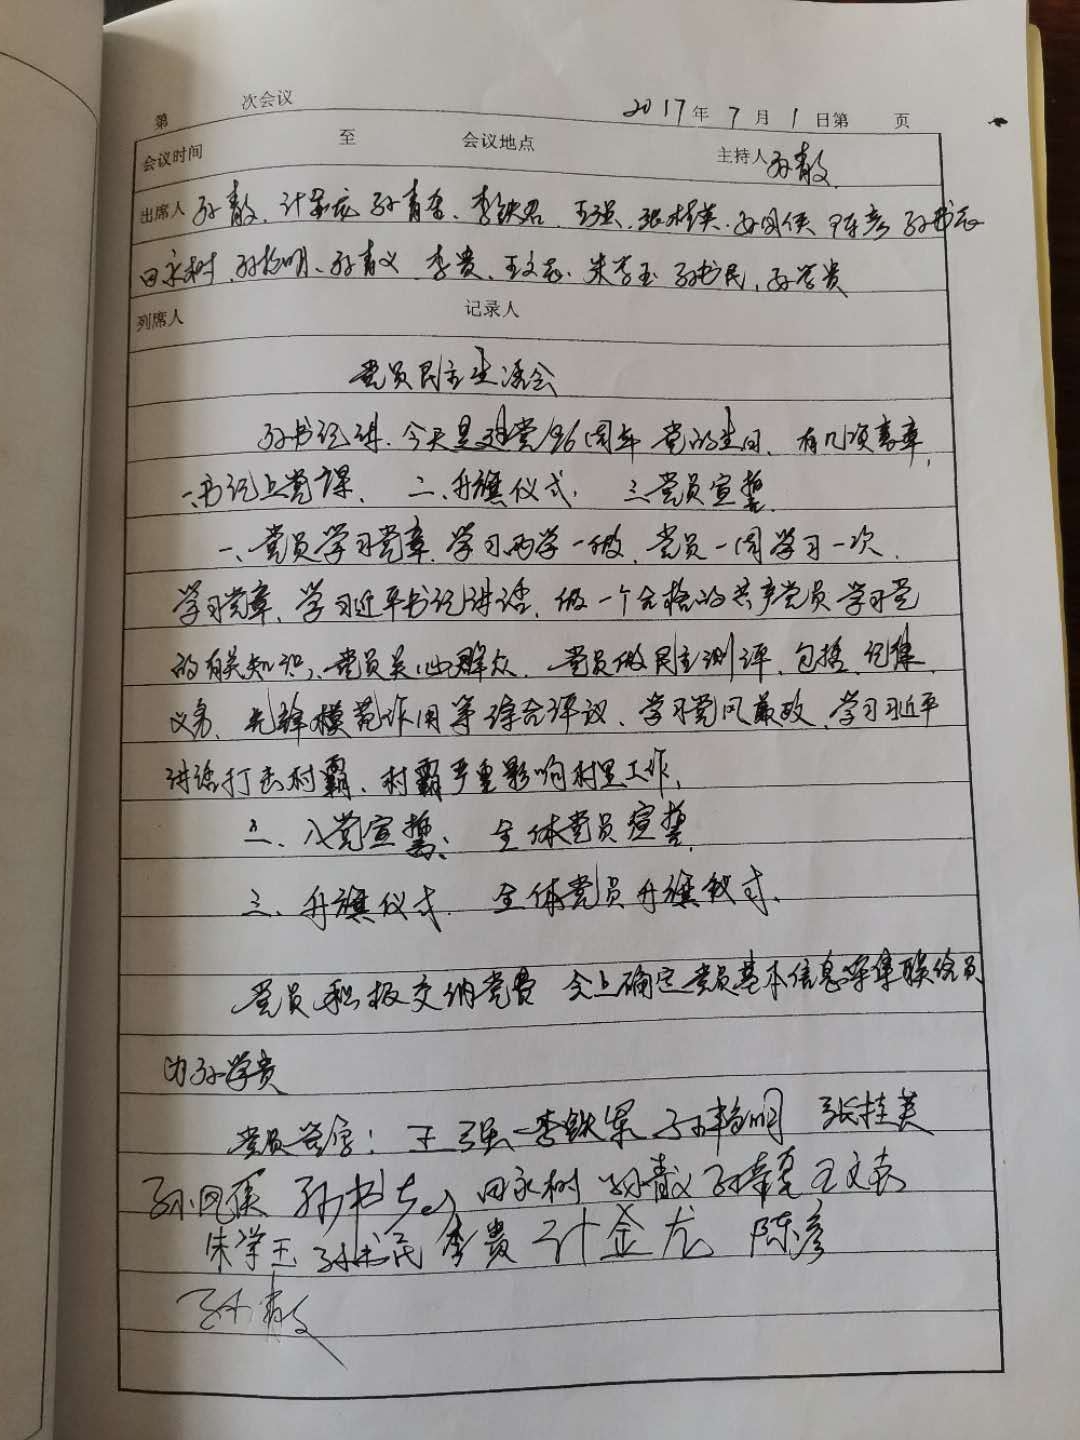 第 次会议 2017年7月1日第 页
会议时间 至 会议地点 主持人 孙青敖
出席人 孙青敖、计金龙 孙青奎、李铁军、王强、张桂英、孙凤侠 陈彦 孙书志
田永树、孙杨明、孙青义、李贵、王文志、朱学玉 孙书民、孙学贵
列席人 记录人
党员民主生活会
孙书记讲、今天是建党96周年 党的生日、有几项事章,
一、书记上党课、 二、升旗仪式、 三、党员宣誓
一、党员学习党章、学习两学一做、党员一周学习一次、
学习党章、学习习近平书记讲话、做一个合格的共产党员 学习党
的有关知识、党员关心群众、党员做民主测评、包括、纪律
义务、先锋模范作用等综合评议、学习党风廉政、学习习近平
讲话打击村霸、村霸严重影响村里工作,
二、入党宣誓: 全体党员宣誓
三、升旗仪式. 全体党员升旗仪式.
党员积极交纳党费 会上确定党员基本信息采集联络员
为孙学贵
党员签字: 王强 李铁军 孙杨明 张桂英
孙凤侠 孙书志 田永树 孙青义 孙青奎 王文志
朱学玉 孙书民 李贵 计金龙 陈彦
孙青敖